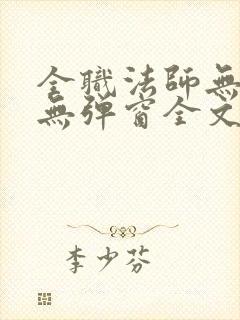 全職法師無
無彈窗全文
李少芬